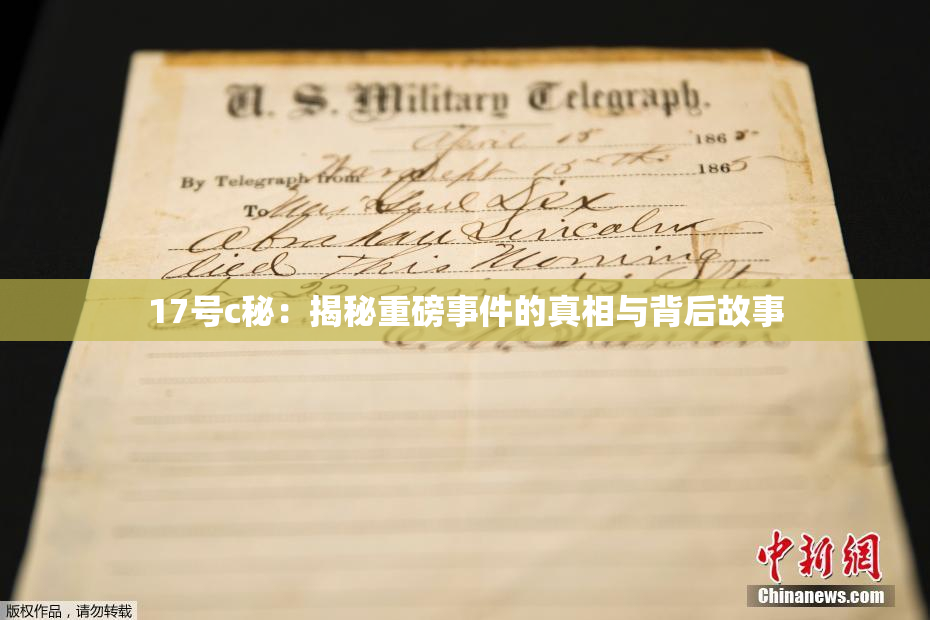 U. S. Military Telegraph.
April 15 1865
By Telegraph from War Dept 15th 1865
To Maj Genl Dix
Abraham Lincoln
died This Morning
at 22 minutes after
17号c秘：揭秘重磅事件的真相与背后故事
E. M. Stanton
中新网
Chinanews.com
版权作品，请勿转载